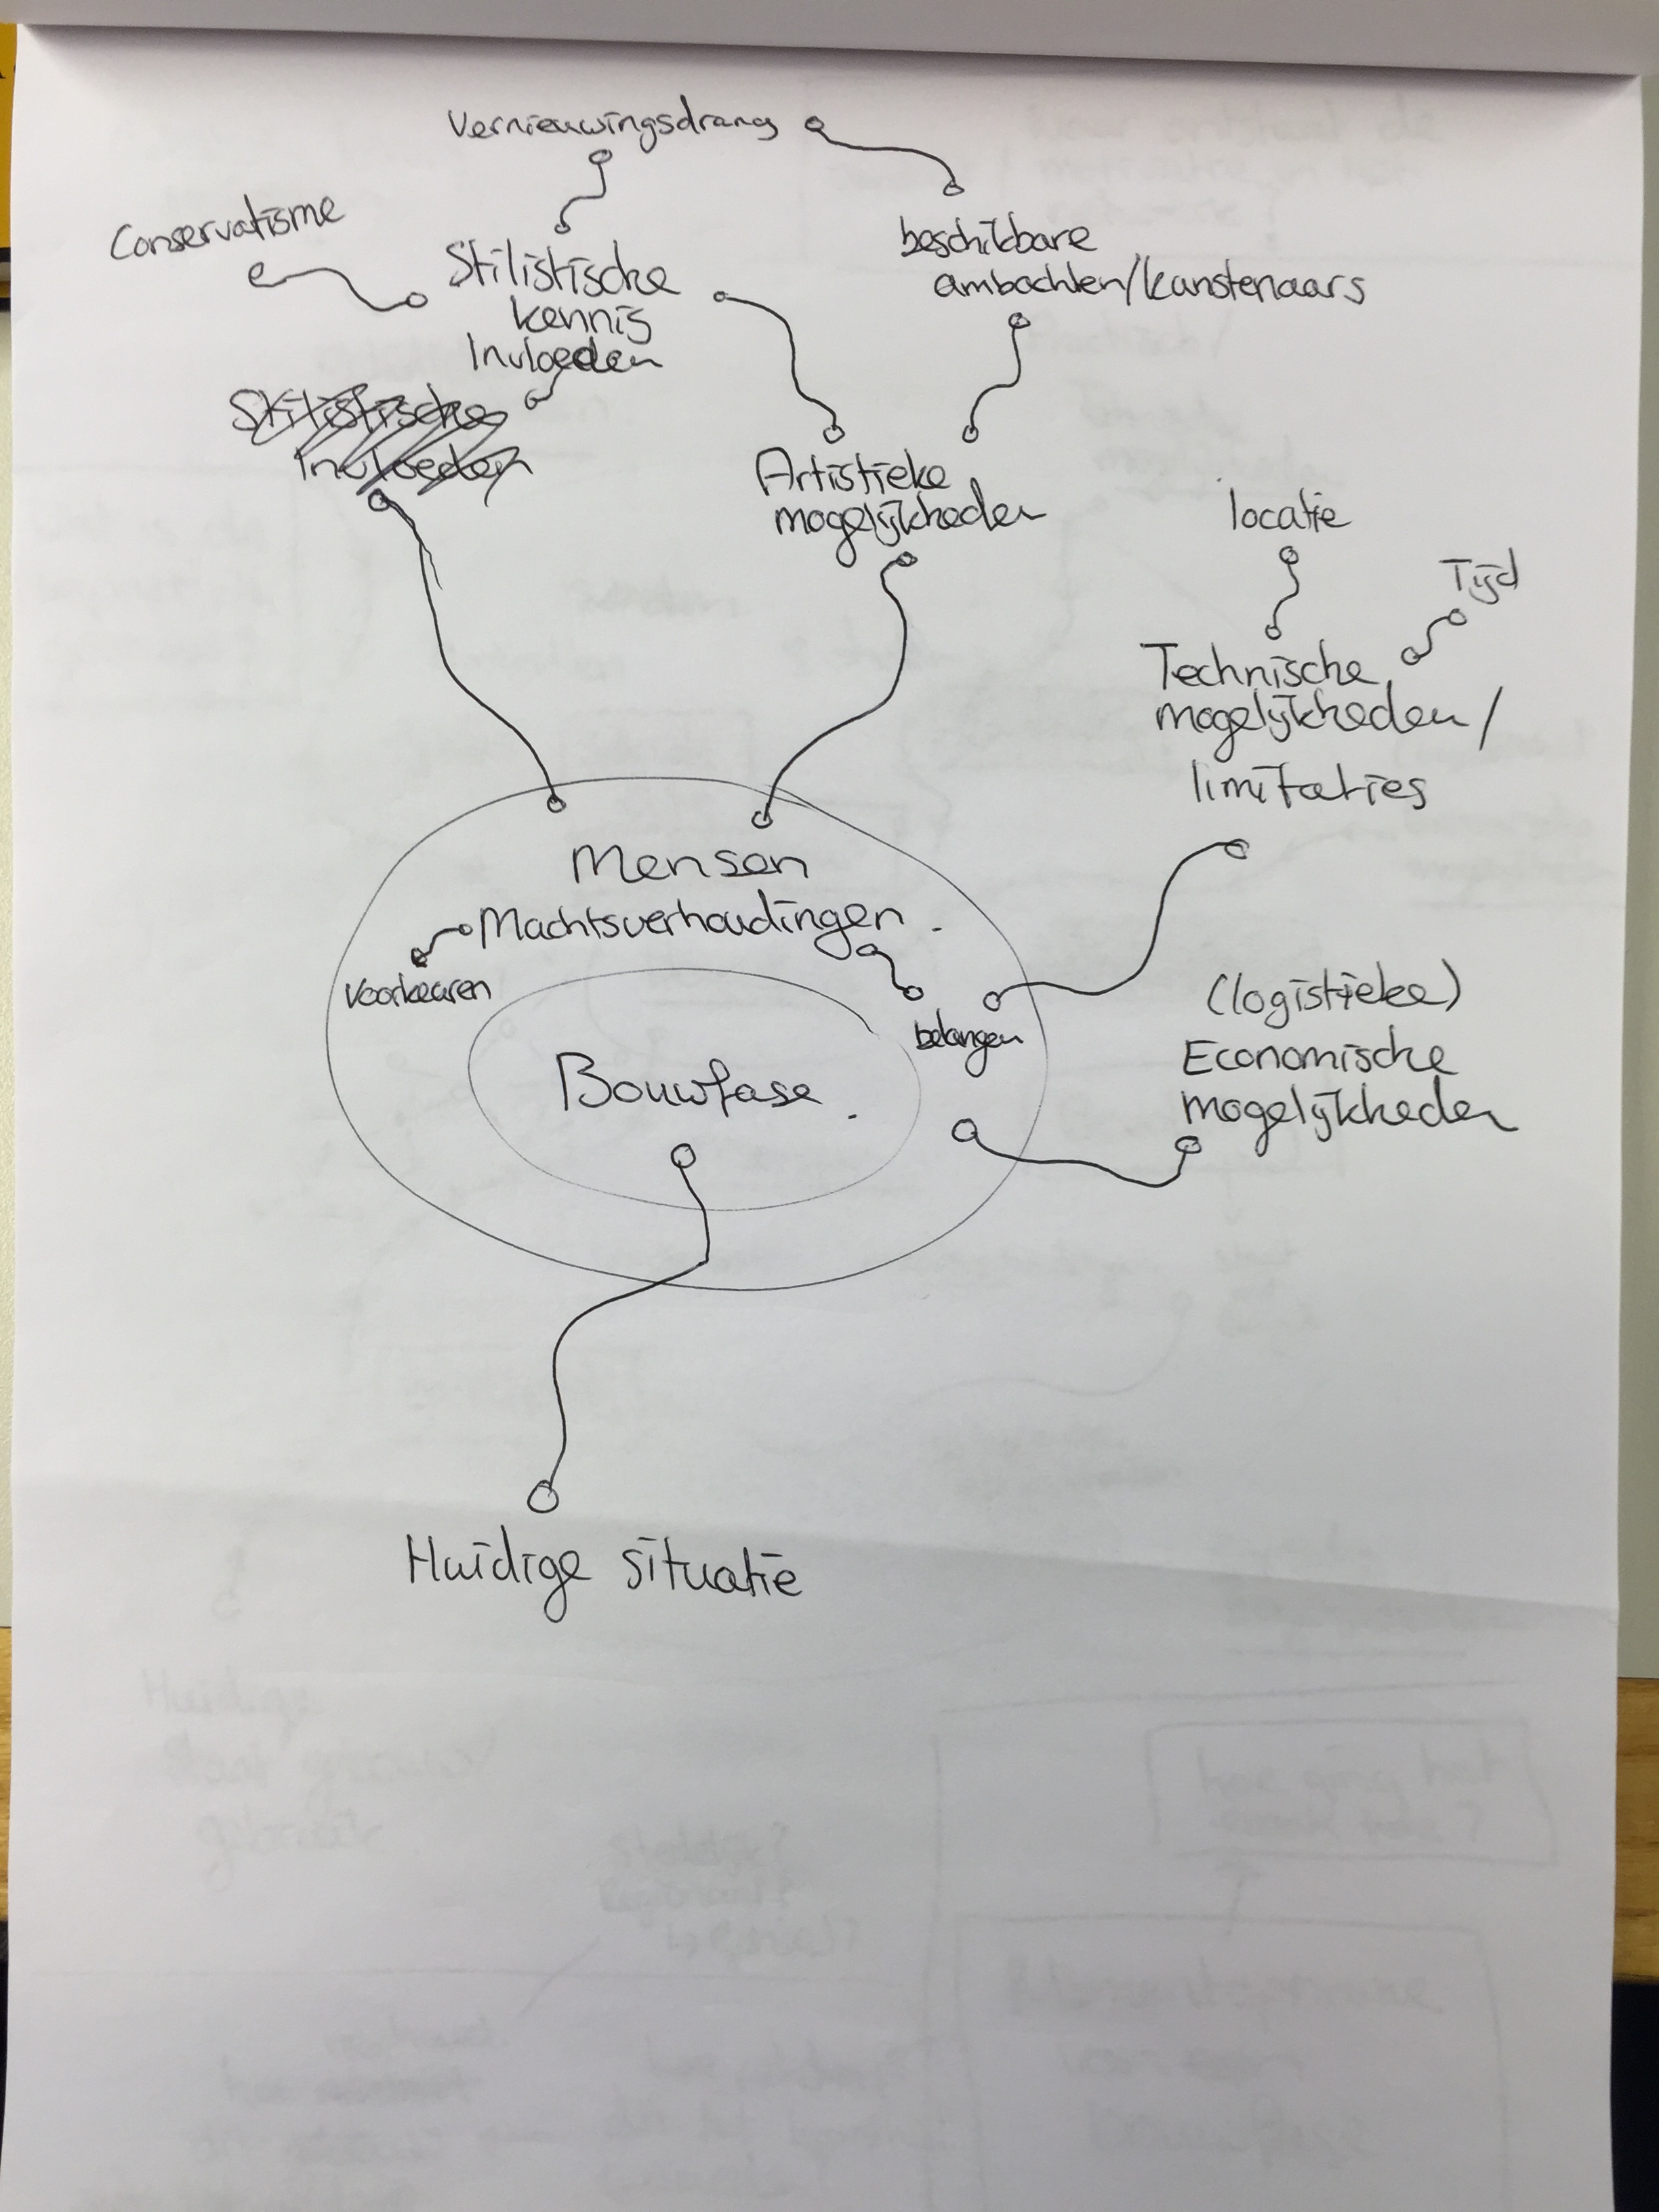 Vernieuwingsdrang
Conservatisme
Stilistische
kennis
Invloeden
beschikbare
ambachten/kunstenaars
Stilistische
Invloeden
Artistieke
mogelijkheden
locatie
Tijd
Technische
mogelijkheden/
limitaties
Mensen
Machtsverhoudingen.
voorkeuren
belangen
(logistieke)
Economische
mogelijkheden
Bouwfase.
Huidige situatie